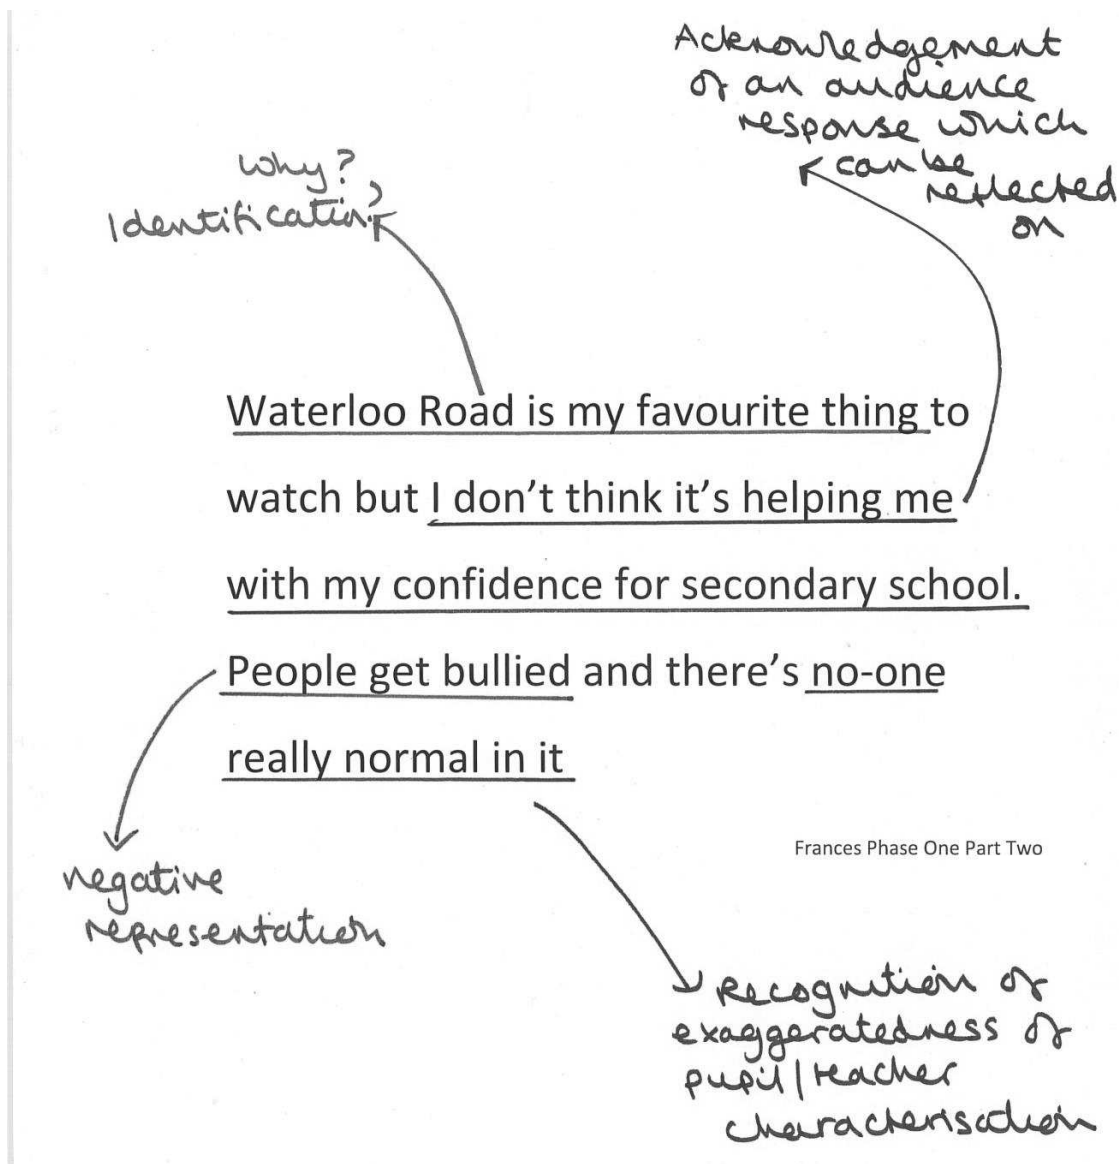 Acknowledgement
of an audience
response which
can be
reflected
on
Why?
Identification?
Waterloo Road is my favourite thing to
watch but I don't think it's helping me
with my confidence for secondary school.
People get bullied and there's no-one
really normal in it
Frances Phase One Part Two
negative
representation
Recognition of
exaggeratedness of
pupil/teacher
characterisation